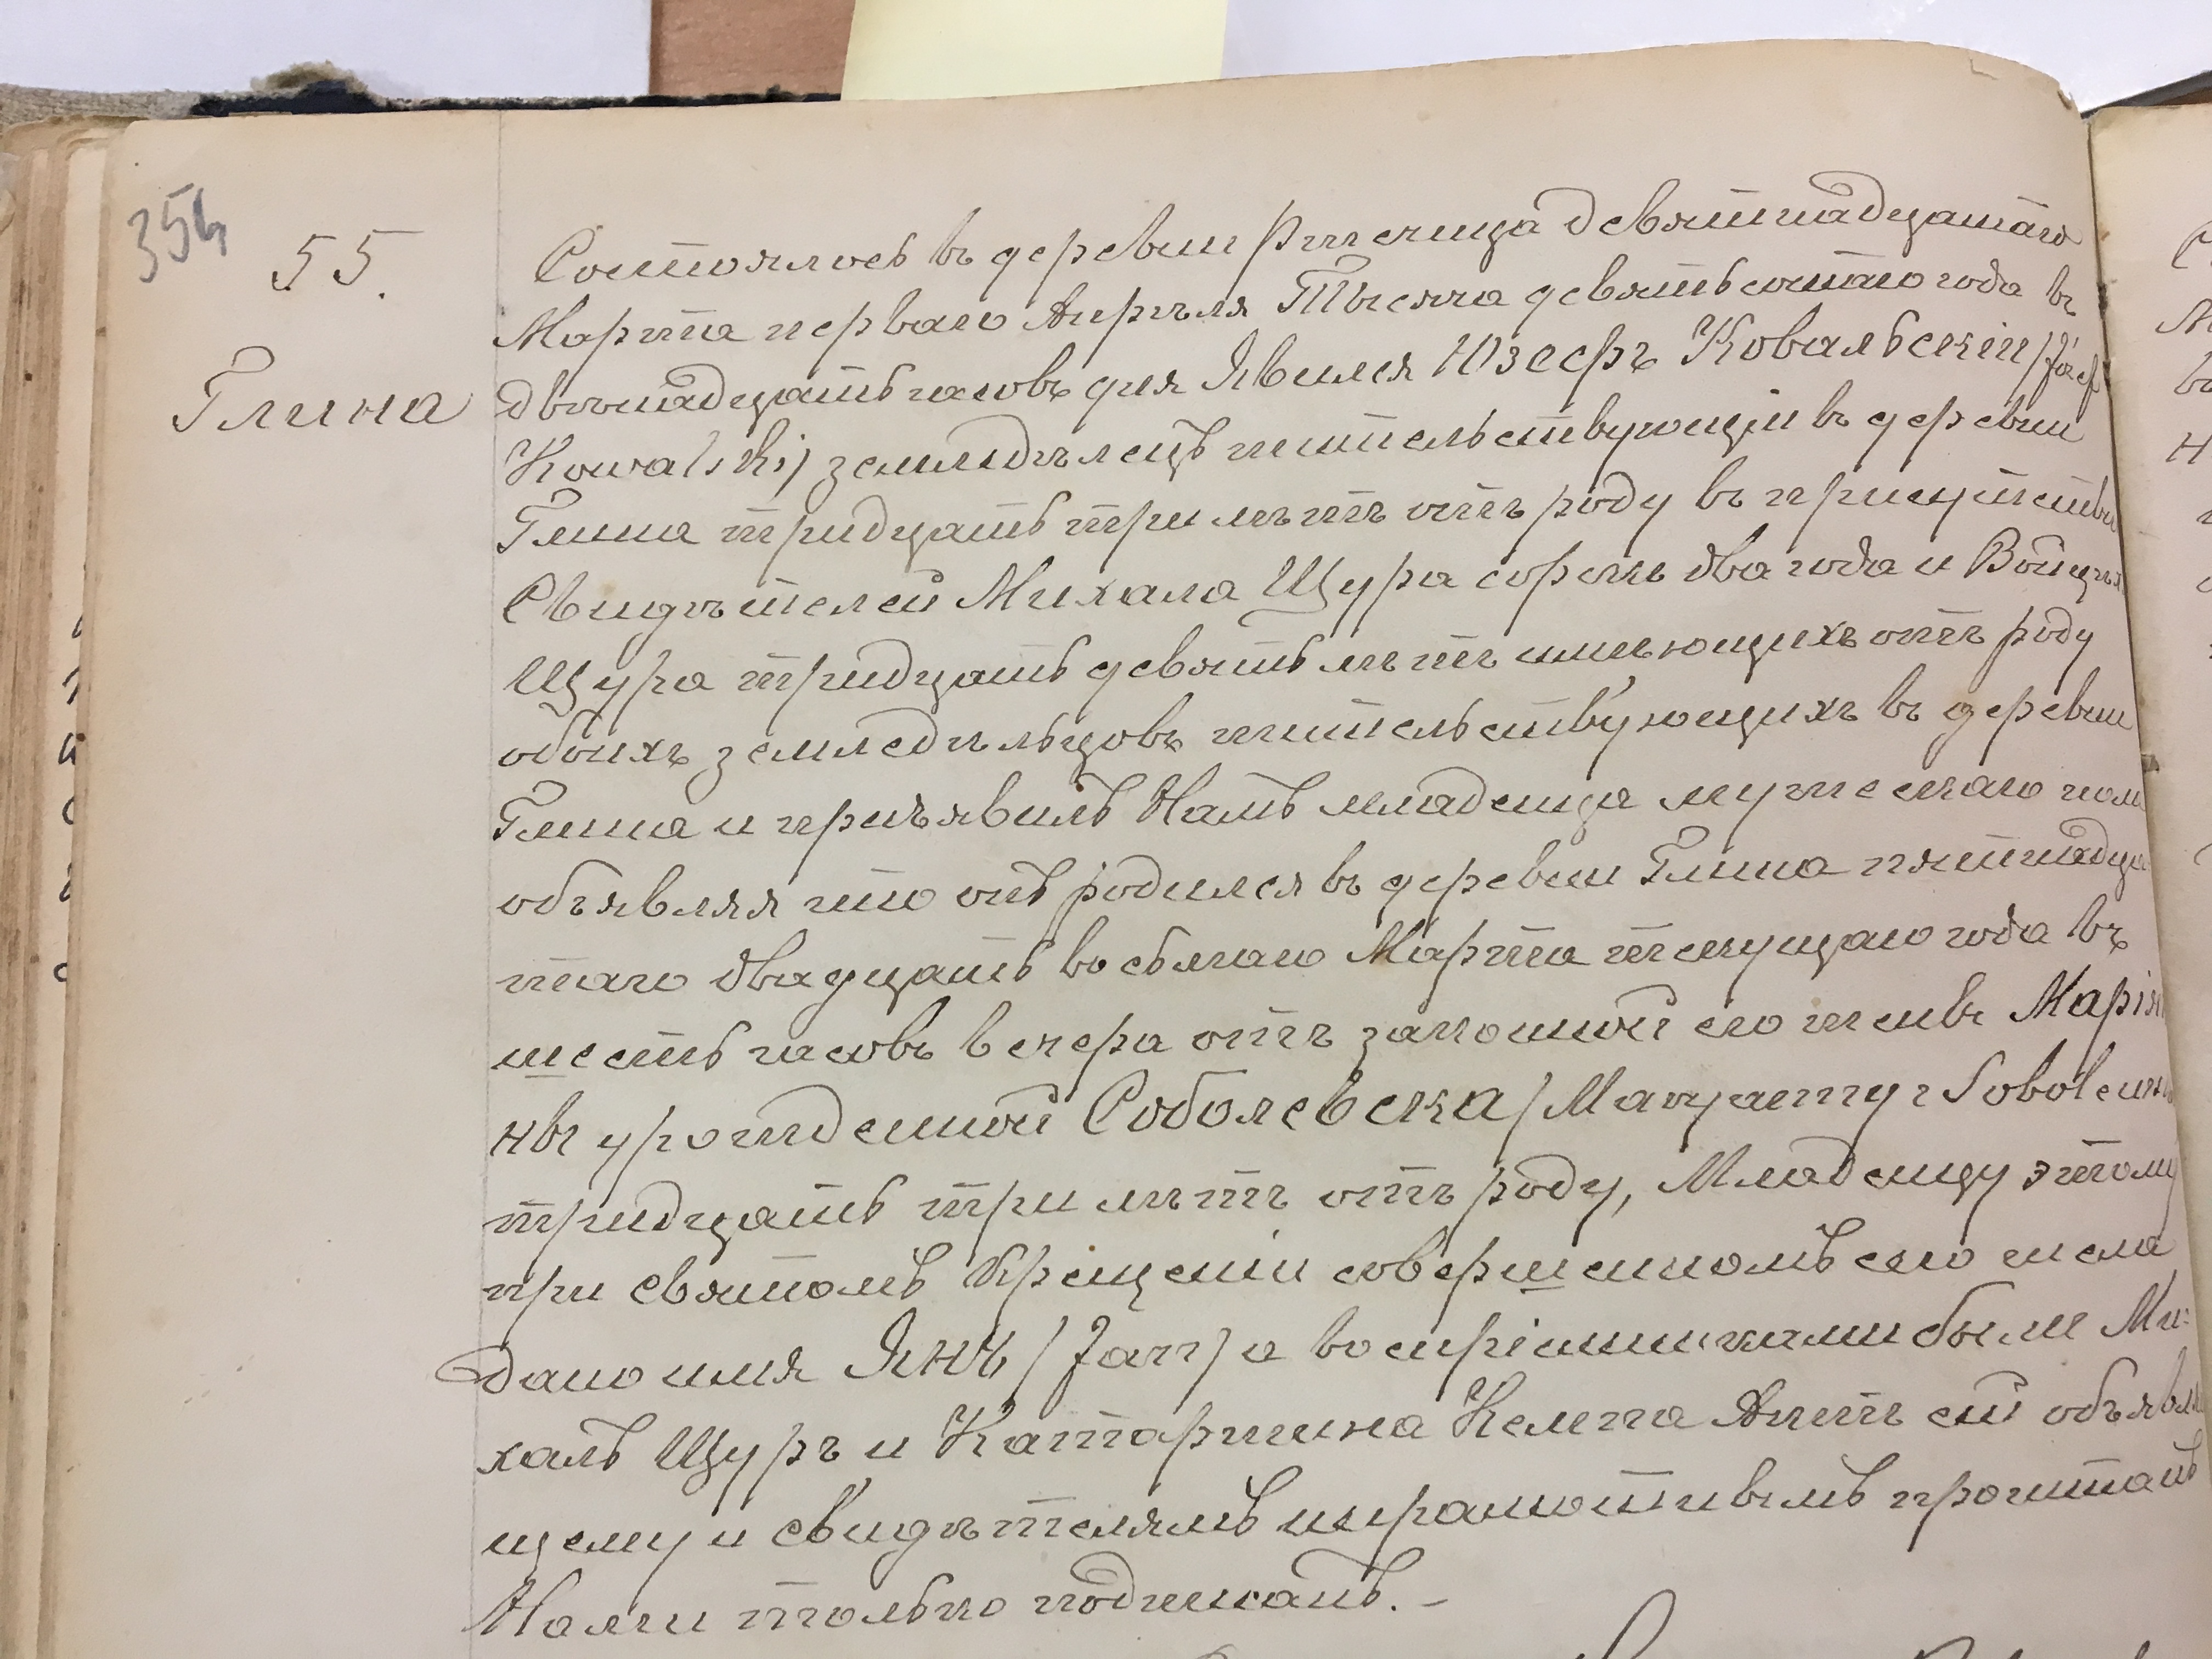 354
55.
Глина
Состоялось въ деревни Рженица девятнадцатаго
Марта перваго Апрѣля Тысяча девятьсотаго года въ
двѣнадцать часовъ дня Явился Юзефъ Ковальскій /Józef
Kowalski/ земледѣлецъ жительствующій въ деревни
Глина тридцать три лѣтъ отъ роду въ присутстви
Свидѣтелей Михала Щура сорокъ два года и Войцѣх
Щура тридцать девять лѣтъ имѣющихъ отъ роду
обоихъ земледѣльцовъ жительствующихъ въ деревни
Глина и предъявилъ Намъ младенца мужескаго пола
объявляя что онъ родился въ деревни Глина пятнадца
таго двадцать восьмаго Марта текущаго года въ
шесть часовъ вечера отъ законной его жены Марiян
ны урожденной Соболевска /Maryanny z Sobolewsk
тридцать три лѣтъ отъ роду, Младенцу этому
при Святомъ Крещеніи совершенномъ сего числа
дано имя Янъ /Jan/ а воспріемниками были Ми-
халъ Щуръ и Катаржина Кемпа Актъ сей объявля
щему и Свидѣтелямъ неграмотнымъ прочитанъ
Нами только подписанъ.-